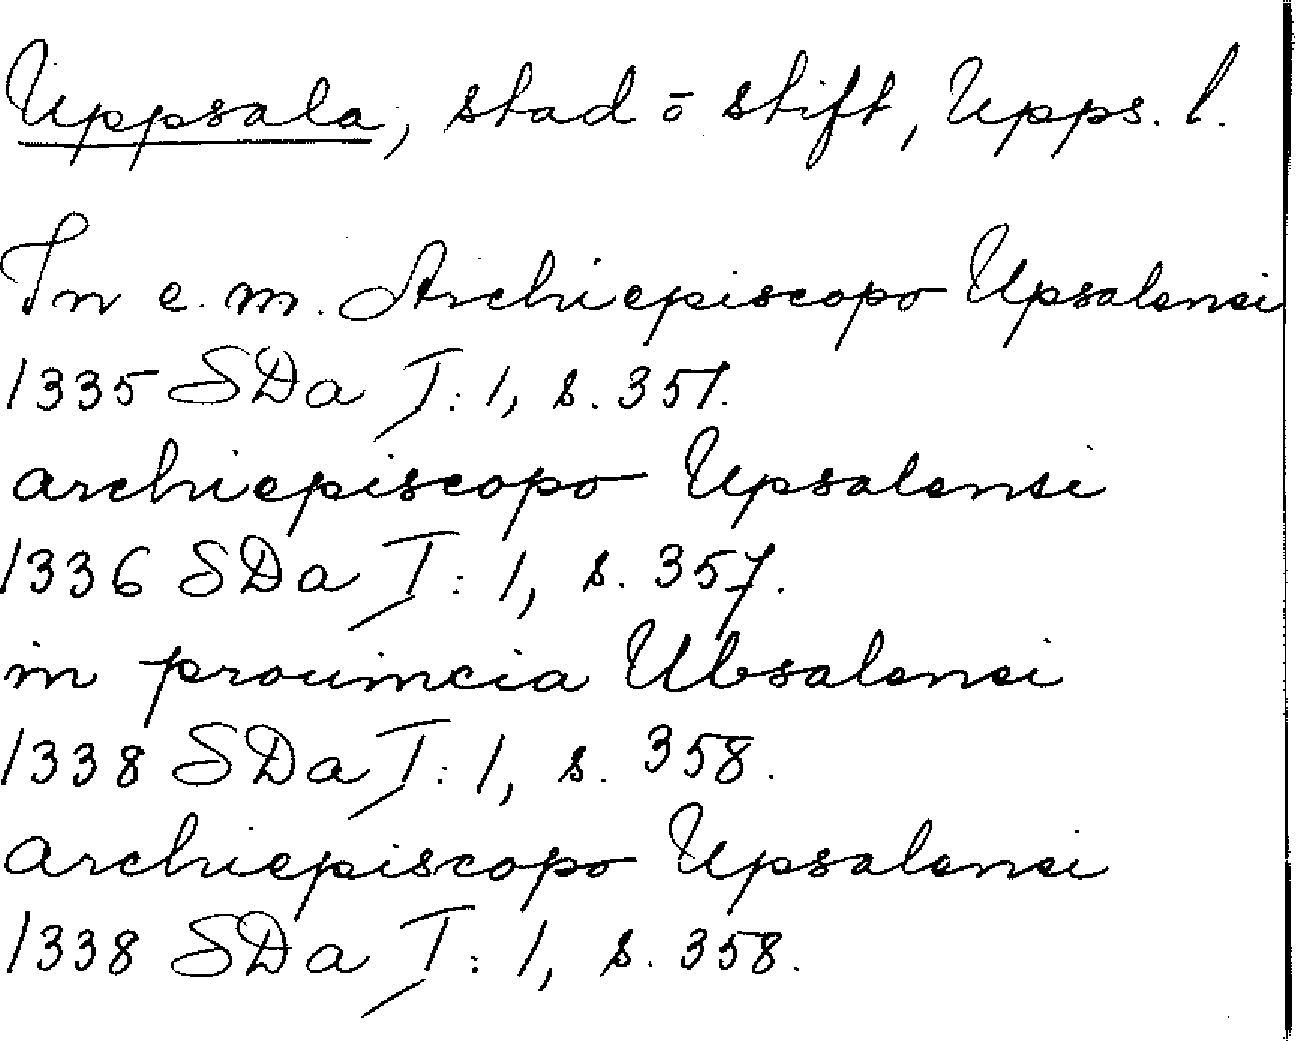 Uppsala, stad ō stift, Upps. l.
In e. m. Archiepiscopo Upsalensi
1335 SDa I: 1, s. 351.
archiepiscopo Upsalensi
1336 SDa I: 1, s. 357.
in prouincia Ubsalensi
1338 SDa I: 1, s. 358.
archiepiscopo Upsalensi
1338 SDa I: 1, s. 358.